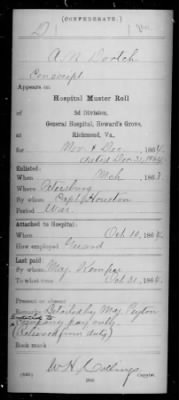 (CONFEDERATE.)
D
A. M. Dortch
Conscript
Appears on
Hospital Muster Roll
2d Division,
General Hospital, Howard's Grove,
at Richmond, Va.,
for Nov & Dec, 1864.
dated Dec 31, 1864
Enlisted:
When Mch, 1863.
Where Petersburg
By whom Capt Houston
Period War
Attached to Hospital:
When Oct 10, 1864.
How employed Guard
Last paid:
By whom Maj.
To what time Oct 31, 1864.
Present or absent
Remarks: Detailed by Maj. Peyton
Entitled to
company pay only.
(Relieved from duty)
Book mark:
Copyist.